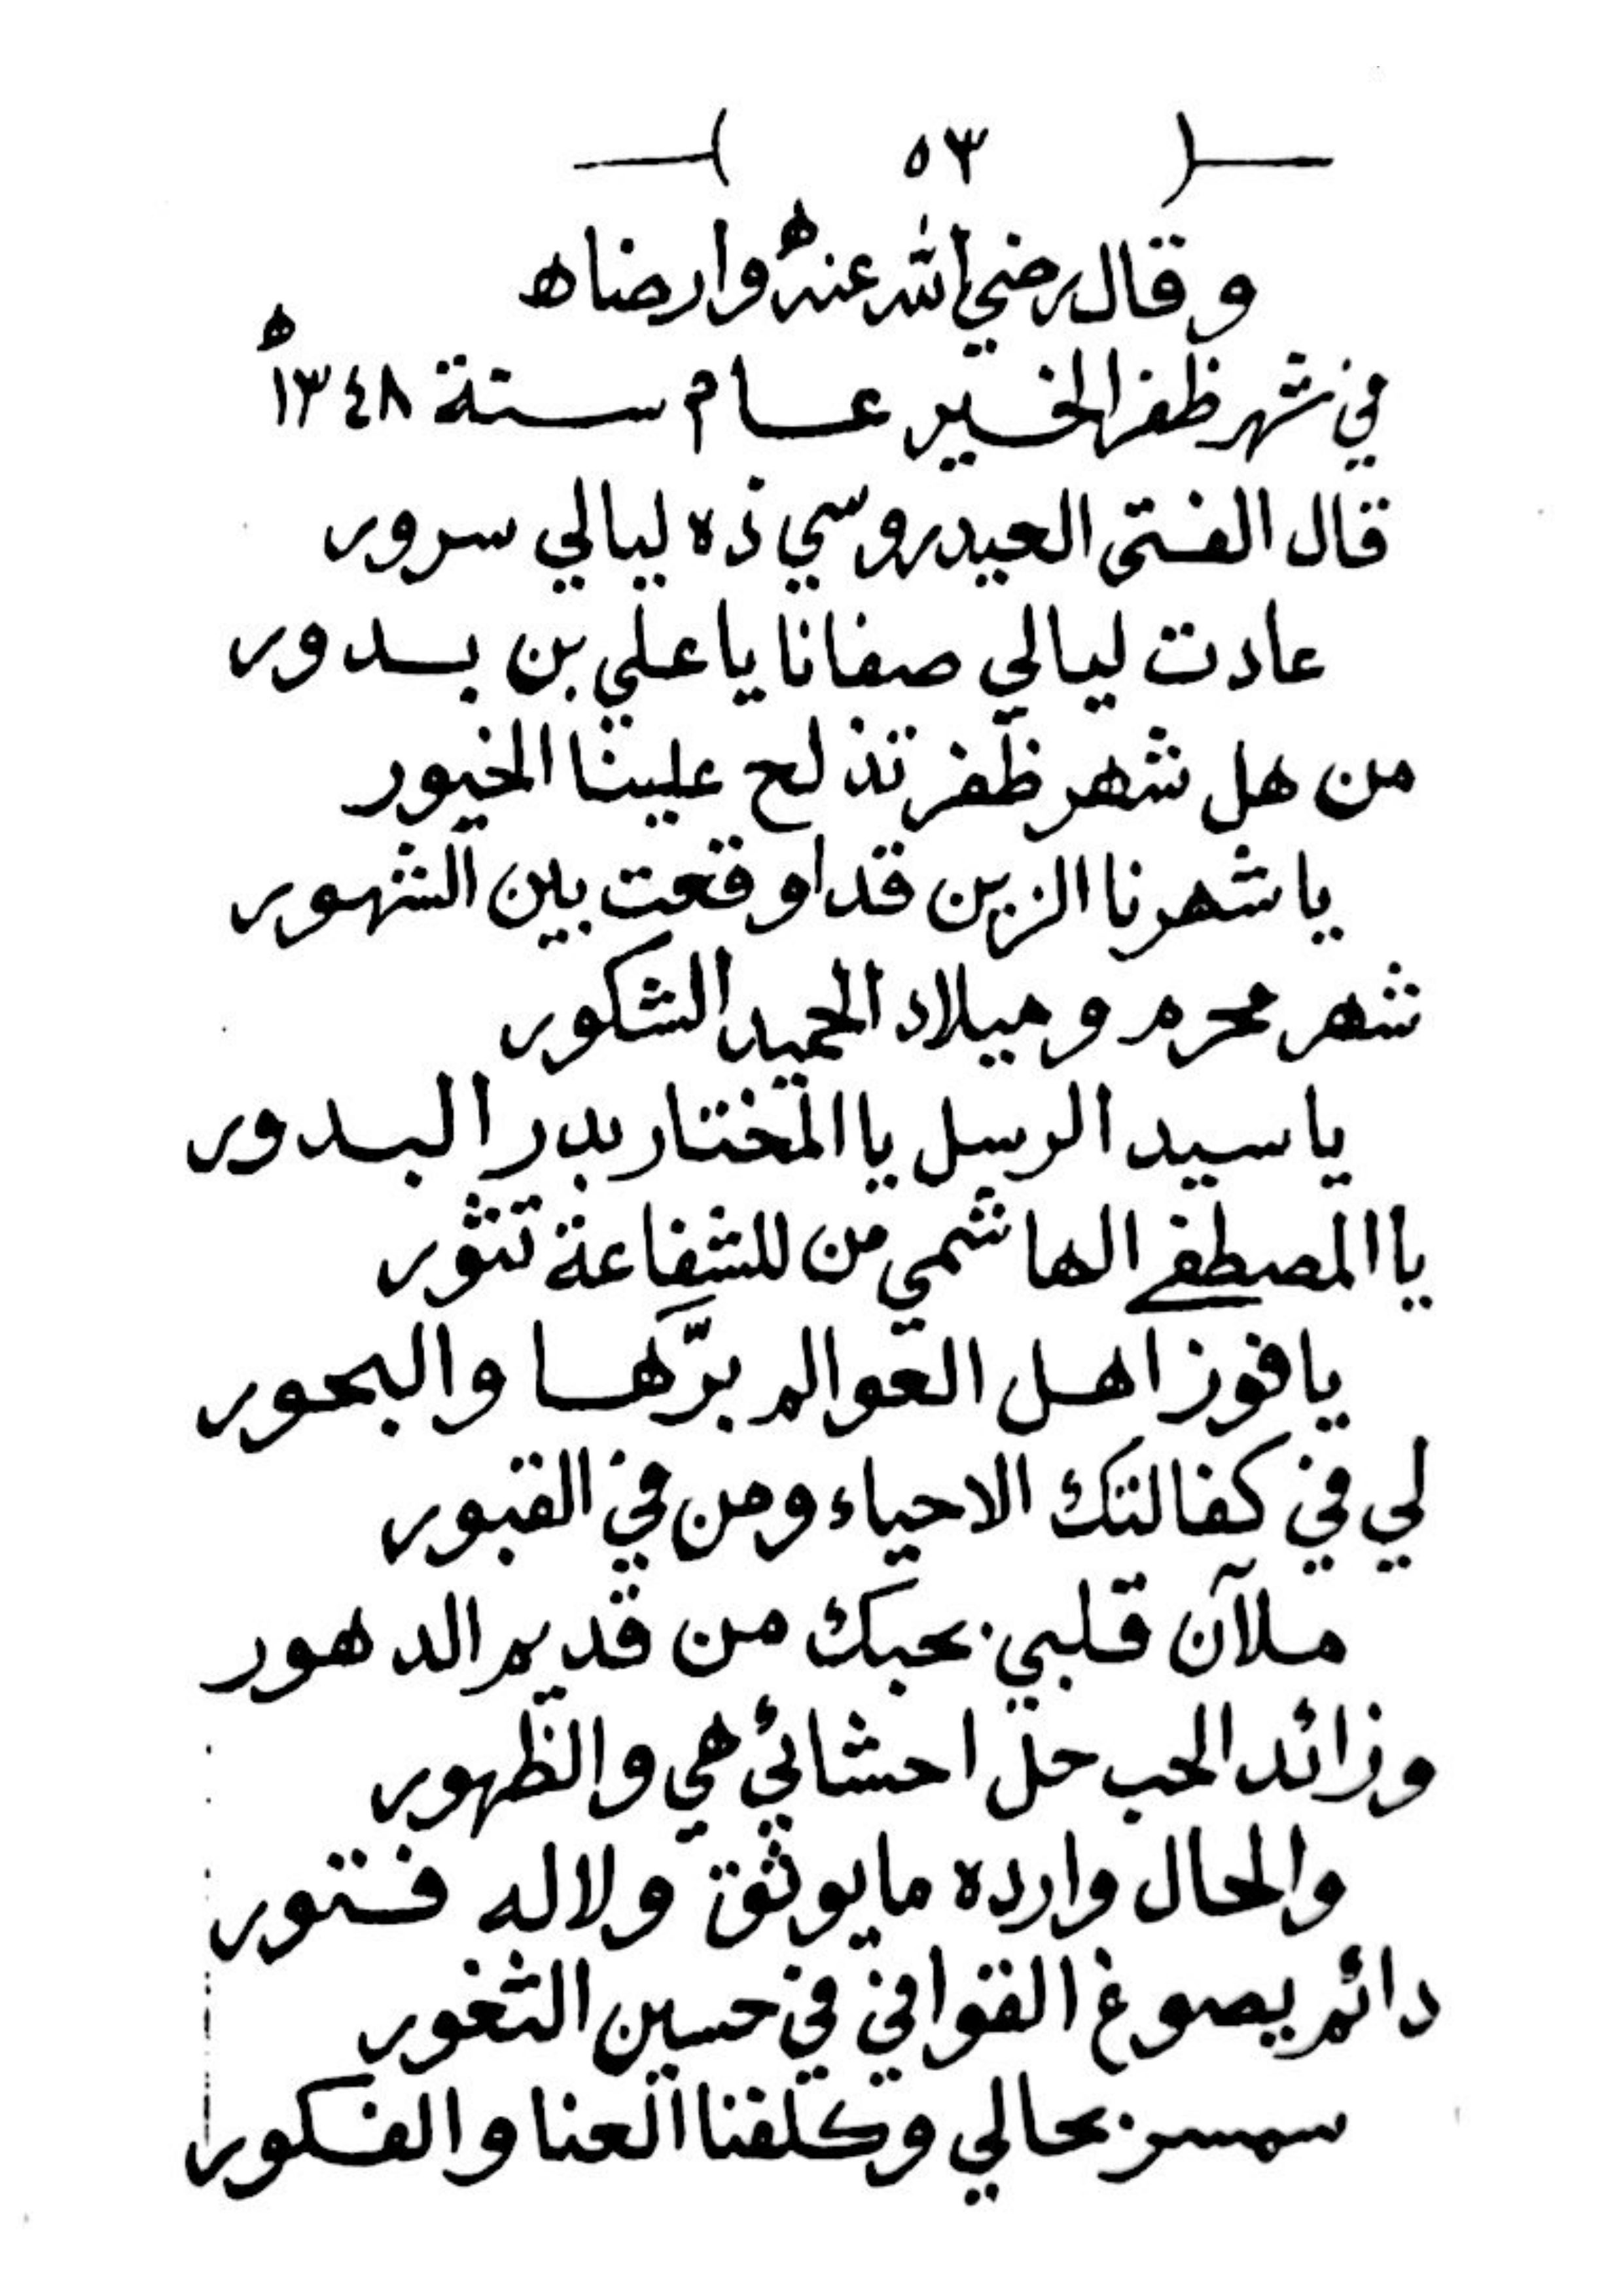 ( ٥٣ )
وقال رضي الله عنه وارضاه
في شهر ظفر الخير عام سنة ١٣٤٨ه
قال الفتى العيدروسي ذه ليالي سرور
عادت ليالي صفانا يا علي بن بدور
من هل شهر ظفر تذلح علينا الخيور
يا شهرنا الزين قد اوقعت بين الشهور
شهر محرم وميلاد الحميد الشكور
يا سيد الرسل يا المختار بدر البدور
يا المصطفى الهاشمي من للشفاعة تثور
يا فوز اهل العوالم برَّها والبحور
لي في كفالتك الاحياء ومن في القبور
ملآن قلبي بحبك من قديم الدهور
وزائد الحب حل احشائي هي والظهور
والحال وارده ما يوثق ولا له فتور
دائم يصوغ القوافي في حسين الثغور
سمسر بحالي وكلفنا العنا والفكور